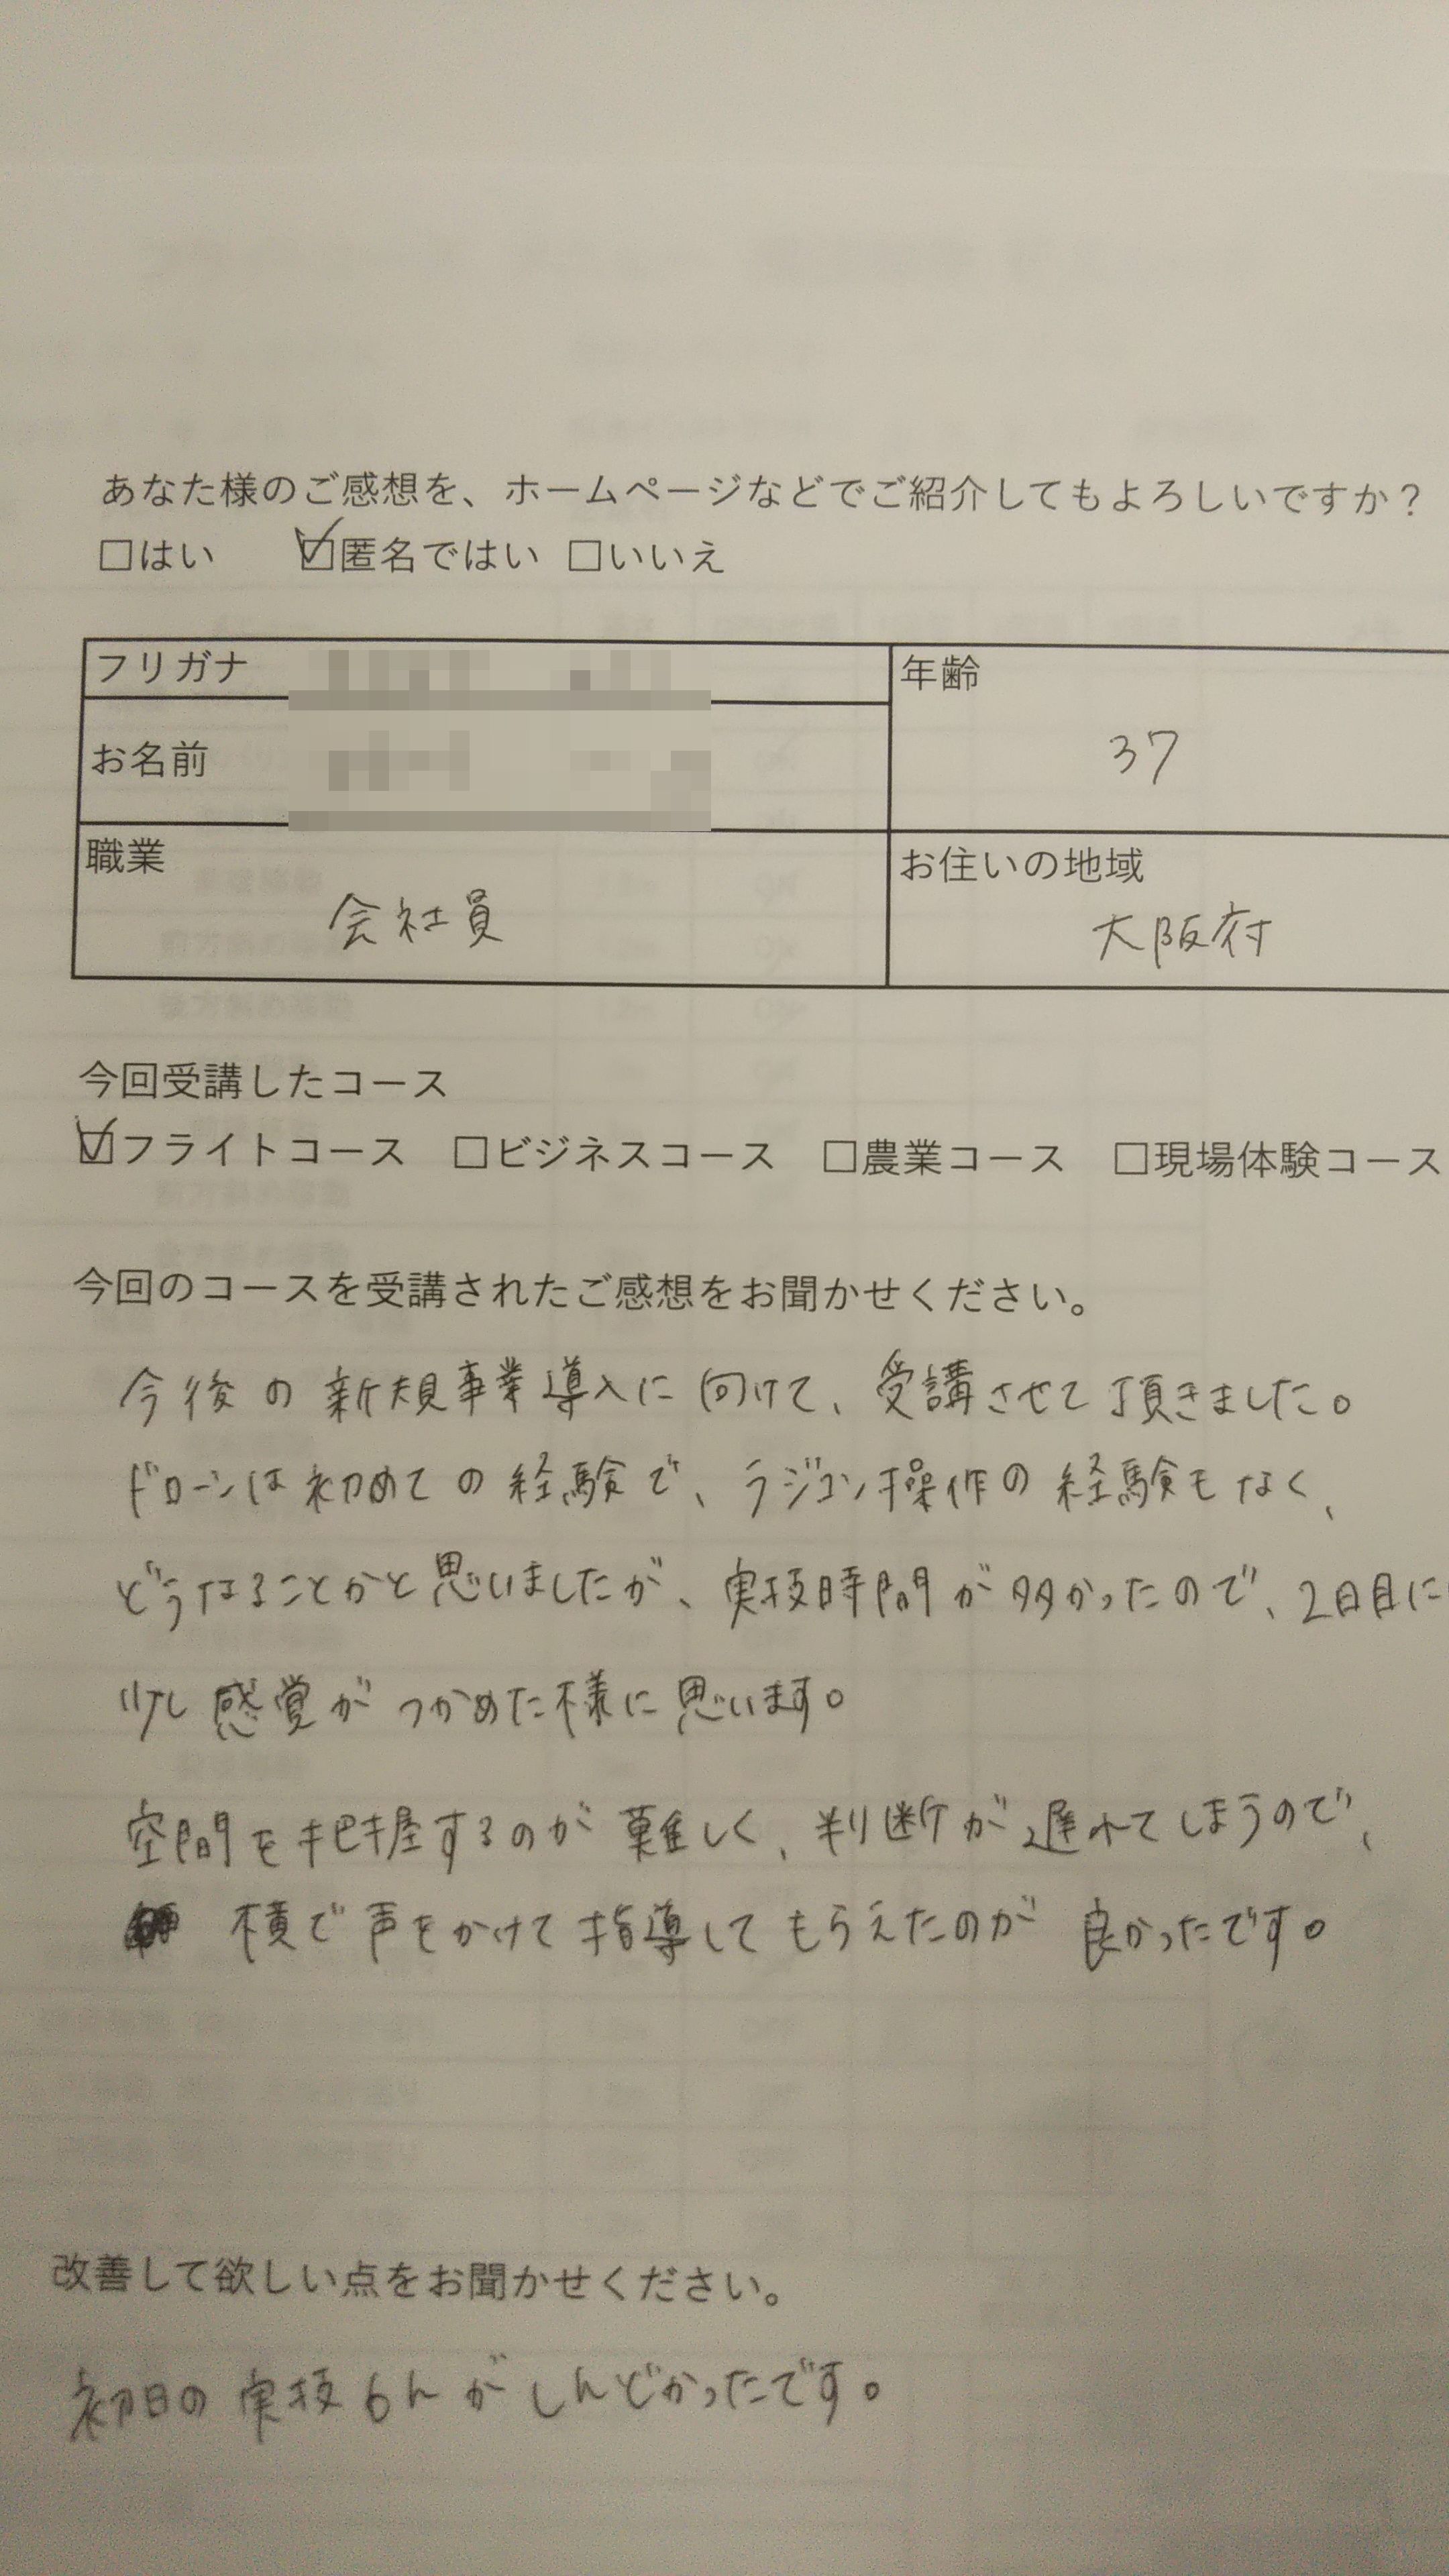 あなた様のご感想を、ホームページなどでご紹介してもよろしいですか?
□はい ☑匿名ではい □いいえ
フリガナ
お名前
年齢
37
職業
会社員
お住いの地域
大阪府
今回受講したコース
☑フライトコース □ビジネスコース □農業コース □現場体験コース
今回のコースを受講されたご感想をお聞かせください。
今後の新規事業導入に向けて、受講させて頂きました。
ドローンは初めての経験で、ラジコン操作の経験もなく、
どうなることかと思いましたが、実技時間が多かったので、2日目に
少し感覚がつかめた様に思います。
空間を把握するのが難しく、判断が遅れてしまうので、
横で声をかけて指導してもらえたのが良かったです。
改善して欲しい点をお聞かせください。
初日の実技6hがしんどかったです。